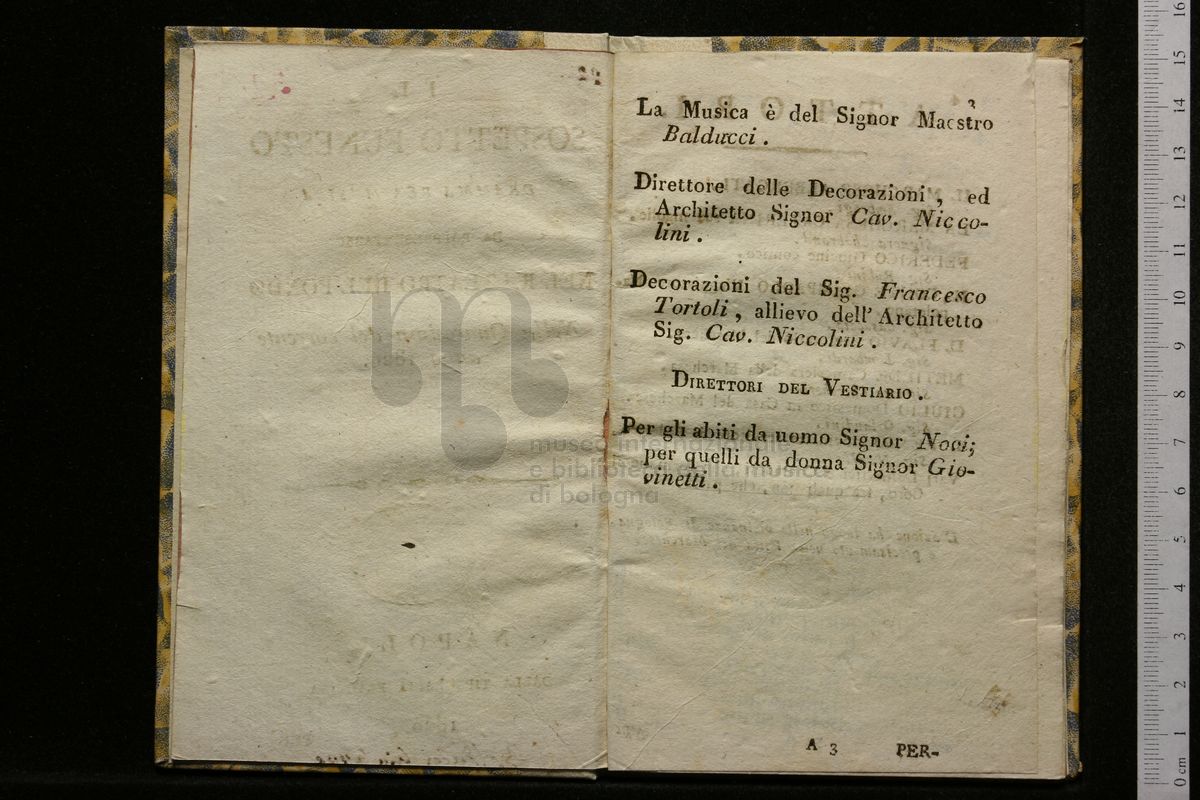 3
La Musica è del Signor Maestro
Balducci.
Direttore delle Decorazioni, ed
Architetto Signor Cav. Nicco-
lini.
Decorazioni del Sig. Francesco
Tortoli, allievo dell' Architetto
Sig. Cav. Niccolini.
Direttori del Vestiario.
Per gli abiti da uomo Signor Novi;
per quelli da donna Signor Gio-
vinetti.
A 3 PER-
museo internazionale
e biblioteca della musica
di bologna
16
15
14
13
12
11
10
9
8
7
6
5
4
3
2
1
0 cm